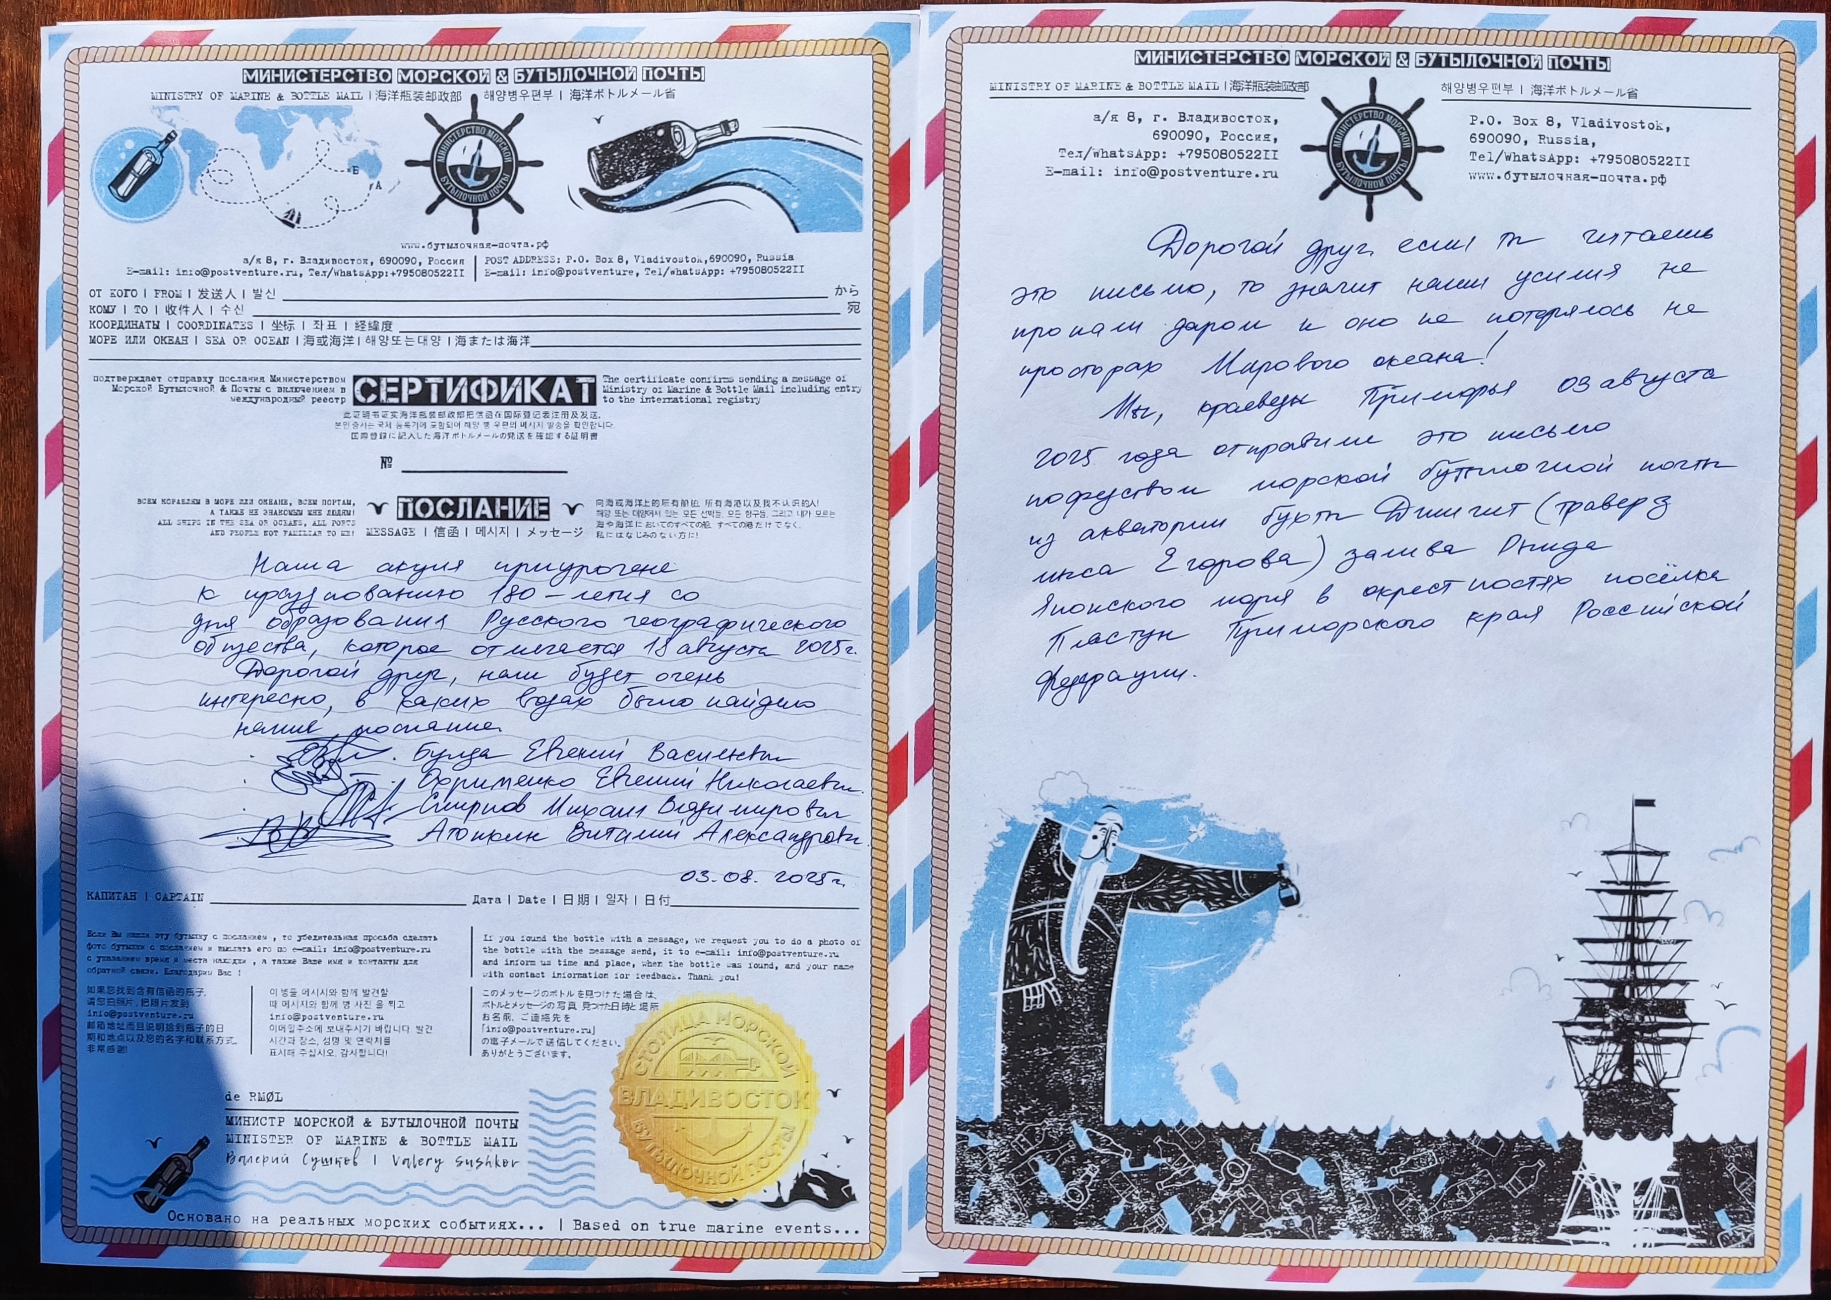 МИНИСТЕРСТВО МОРСКОЙ & БУТЫЛОЧНОЙ ПОЧТЫ
MINISTRY OF MARINE & BOTTLE MAIL | 海洋瓶装邮政部
해양병우편부 | 海洋ボトルメール省
МИНИСТЕРСТВО МОРСКОЙ
БУТЫЛОЧНОЙ ПОЧТЫ
Б
А
www.бутылочная-почта.рф
а/я 8, г. Владивосток, 690090, Россия
E-mail: info@postventure.ru, Тел/WhatsApp:+79508052211
POST ADDRESS: P.O. Box 8, Vladivostok,690090, Russia
E-mail: info@postventure, Tel/WhatsApp: +79508052211
ОТ КОГО | FROM | 发送人 | 발신 から
КОМУ | TO | 收件人 | 수신 宛
КООРДИНАТЫ | COORDINATES | 坐标 | 좌표 | 経緯度
МОРЕ ИЛИ ОКЕАН | SEA OR OCEAN | 海或海洋 | 해양또는대양 | 海または海洋
подтверждает отправку послания Министерством
Морской Бутылочной & Почты с включением в
международный реестр
СЕРТИФИКАТ
The certificate confirms sending a message of
Ministry of Marine & Bottle Mail including entry
to the international registry
此证明书证实海洋瓶装邮政部把信函在国际登记表注册及发送。
国際登録に記入した海洋ボトルメールの発送を確認する証明書
№
ВСЕМ КОРАБЛЯМ В МОРЕ ИЛИ ОКЕАНЕ, ВСЕМ ПОРТАМ,
А ТАКЖЕ НЕ ЗНАКОМЫМ МНЕ ЛЮДЯМ!
ALL SHIPS IN THE SEA OR OCEANS, ALL PORTS
AND PEOPLE NOT FAMILIAR TO ME!
ПОСЛАНИЕ
MESSAGE | 信函 | 메시지 | メッセージ
向海或海洋上的所有船舶, 所有海港以及我不认识的人!
海や海洋においてのすべての船、すべての港だけでなく、
私にはなじみのない方に!
Наша акция приурочена
к празднованию 180-летия со
дня образования Русского географического
общества, которое отмечается 18 августа 2025г.
Дорогой друг, нам будет очень
интересно, в каких водах было найдено
наше послание.
Булда Евгений Васильевич
Охрименко Евгений Николаевич
Смирнов Михаил Владимирович
Атопкин Виталий Александрович
03.08. 2025г.
КАПИТАН | CAPTAIN
Дата | Date | 日期 | 일자 | 日付
Если Вы нашли эту бутылку с посланием , то убедительная просьба сделать
фото бутылки с посланием и выслать его по e-mail: info@postventure.ru
с указанием время и места находки , а также Ваше имя и контакты для
обратной связи. Благодарим Вас !
If you found the bottle with a message, we request you to do a photo of
the bottle with the message send, it to e-mail: info@postventure.ru
and inform us time and place, when the bottle was found, and your name
with contact information for feedback. Thank you!
如果您找到含有信函的瓶子,
请您拍照片, 把照片发到
info@postventure.ru
邮箱地址而且说明捡到瓶子的日
期和地点以及您的名字和联系方式。
非常感谢!
이 병을 메시지와 함께 발견할
때 메시지와 함께 병 사진 을 찍고
info@postventure.ru
이메일주소에 보내주시기 바랍니다. 발견
시간과 장소, 성명 및 연락처를
표시해 주십시오. 감사합니다!
このメッセージのボトルを見つけた場合は、
ボトルとメッセージの写真、見つけた日時と場所
お名前、ご連絡先を
[info@postventure.ru]
の電子メールで送信してください。
ありがとうございます。
de RMØL
МИНИСТР МОРСКОЙ & БУТЫЛОЧНОЙ ПОЧТЫ
MINISTER OF MARINE & BOTTLE MAIL
Валерий Сушков | Valery Sushkov
СТОЛИЦА МОРСКОЙ
ВЛАДИВОСТОК
БУТЫЛОЧНОЙ ПОЧТЫ
Основано на реальных морских событиях... | Based on true marine events...
МИНИСТЕРСТВО МОРСКОЙ & БУТЫЛОЧНОЙ ПОЧТЫ
MINISTRY OF MARINE & BOTTLE MAIL | 海洋瓶装邮政部
해양병우편부 | 海洋ボトルメール省
а/я 8, г. Владивосток,
690090, Россия,
Тел/WhatsApp: +79508052211
E-mail: info@postventure.ru
МИНИСТЕРСТВО МОРСКОЙ
БУТЫЛОЧНОЙ ПОЧТЫ
P.O. Box 8, Vladivostok,
690090, Russia,
Tel/WhatsApp: +79508052211
www.бутылочная-почта.рф
Дорогой друг, если ты читаешь
это письмо, то значит наши усилия не
пропали даром и оно не потерялось на
просторах Мирового океана!
Мы, краеведы Приморья 03 августа
2025 года отправили это письмо
посредством морской бутылочной почты
из акватории бухты Джигит (траверз
мыса Егорова) залива Рында
Японского моря в окрестностях посёлка
Пластун Приморского края Российской
Федерации.